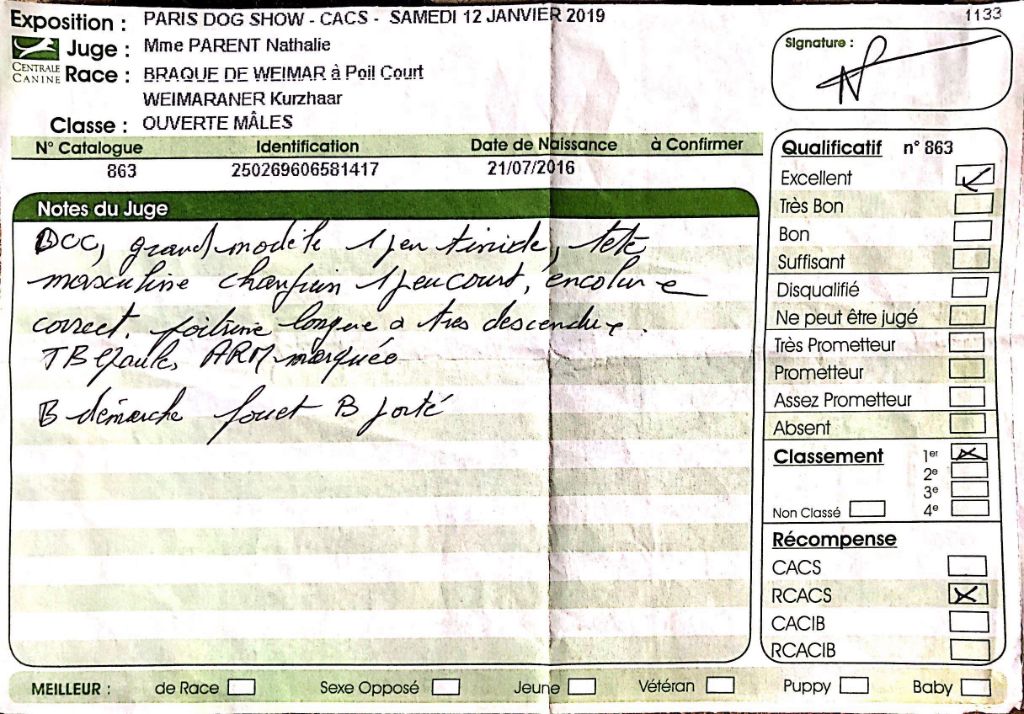 Exposition : PARIS DOG SHOW - CACS - SAMEDI 12 JANVIER 2019
1133
CENTRALE CANINE
Juge : Mme PARENT Nathalie
Race : BRAQUE DE WEIMAR à Poil Court
WEIMARANER Kurzhaar
Classe : OUVERTE MÂLES
Signature :
N° Catalogue Identification Date de Naissance à Confirmer
863 250269606581417 21/07/2016
Notes du Juge
DCC, grand modèle 1 peu timide, tête
masculine chanfrein 1 peu court, encolure
correct. poitrine longue a très descendue.
TB épaules ARM marquée
B démarche fouet B porté
Qualificatif n° 863
Excellent
Très Bon
Bon
Suffisant
Disqualifié
Ne peut être jugé
Très Prometteur
Prometteur
Assez Prometteur
Absent
Classement 1er
2e
3e
Non Classé 4e
Récompense
CACS
RCACS
CACIB
RCACIB
MEILLEUR : de Race Sexe Opposé Jeune Vétéran Puppy Baby